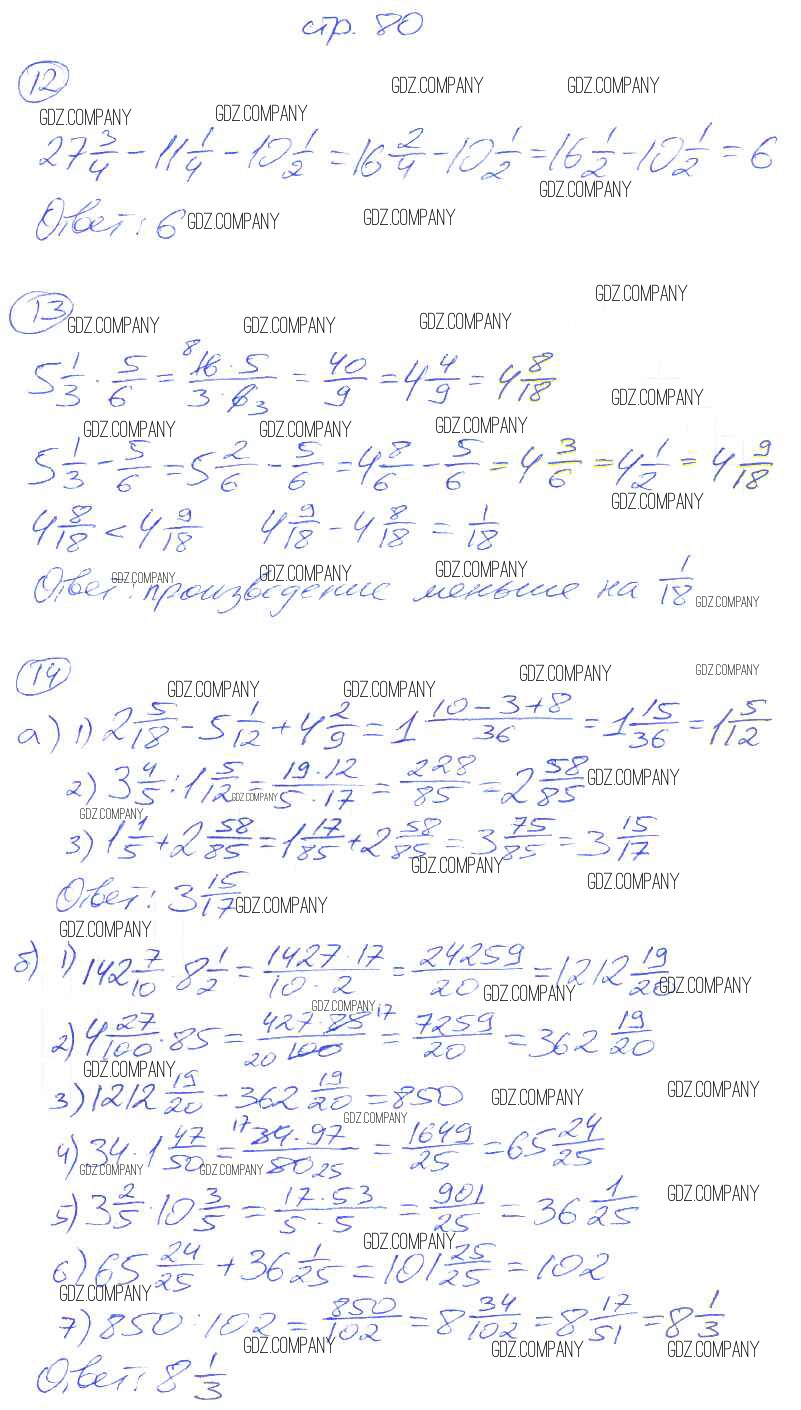 стр. 80
12
GDZ.COMPANY GDZ.COMPANY
GDZ.COMPANY GDZ.COMPANY
27 3/4 - 11 1/4 - 10 1/2 = 16 2/4 - 10 1/2 = 16 1/2 - 10 1/2 = 6
GDZ.COMPANY
Ответ: 6 GDZ.COMPANY GDZ.COMPANY
GDZ.COMPANY
13 GDZ.COMPANY GDZ.COMPANY GDZ.COMPANY
5 1/3 · 5/6 = 8 16 · 5 / 3 · 6 3 = 40/9 = 4 4/9 = 4 8/18
GDZ.COMPANY
GDZ.COMPANY GDZ.COMPANY GDZ.COMPANY
5 1/3 - 5/6 = 5 2/6 - 5/6 = 4 8/6 - 5/6 = 4 3/6 = 4 1/2 = 4 9/18
GDZ.COMPANY
4 8/18 < 4 9/18 4 9/18 - 4 8/18 = 1/18
GDZ.COMPANY GDZ.COMPANY GDZ.COMPANY
Ответ: произведение меньше на 1/18 GDZ.COMPANY
14
GDZ.COMPANY GDZ.COMPANY GDZ.COMPANY GDZ.COMPANY
а) 1) 2 5/18 - 5 1/12 + 4 2/9 = 1 10-3+8/36 = 1 15/36 = 1 5/12
2) 3 4/5 : 1 5/12 = 19·12/5·17 = 228/85 = 2 58/85 GDZ.COMPANY
GDZ.COMPANY GDZ.COMPANY
3) 1 1/5 + 2 58/85 = 1 17/85 + 2 58/85 = 3 75/85 = 3 15/17
GDZ.COMPANY GDZ.COMPANY
Ответ: 3 15/17 GDZ.COMPANY
GDZ.COMPANY
б) 1) 142 7/10 · 8 1/2 = 1427·17/10·2 = 24259/20 = 1212 19/20 GDZ.COMPANY
GDZ.COMPANY GDZ.COMPANY
2) 4 27/100 · 85 = 427·85 17/20 100 = 7259/20 = 362 19/20
GDZ.COMPANY
3) 1212 19/20 - 362 19/20 = 850 GDZ.COMPANY GDZ.COMPANY
GDZ.COMPANY
4) 34 · 1 47/50 = 17 34·97/50 25 = 1649/25 = 65 24/25
GDZ.COMPANY GDZ.COMPANY
5) 3 2/5 · 10 3/5 = 17·53/5·5 = 901/25 = 36 1/25 GDZ.COMPANY
GDZ.COMPANY
6) 65 24/25 + 36 1/25 = 101 25/25 = 102
GDZ.COMPANY
7) 850 : 102 = 850/102 = 8 34/102 = 8 17/51 = 8 1/3
GDZ.COMPANY GDZ.COMPANY GDZ.COMPANY
Ответ: 8 1/3